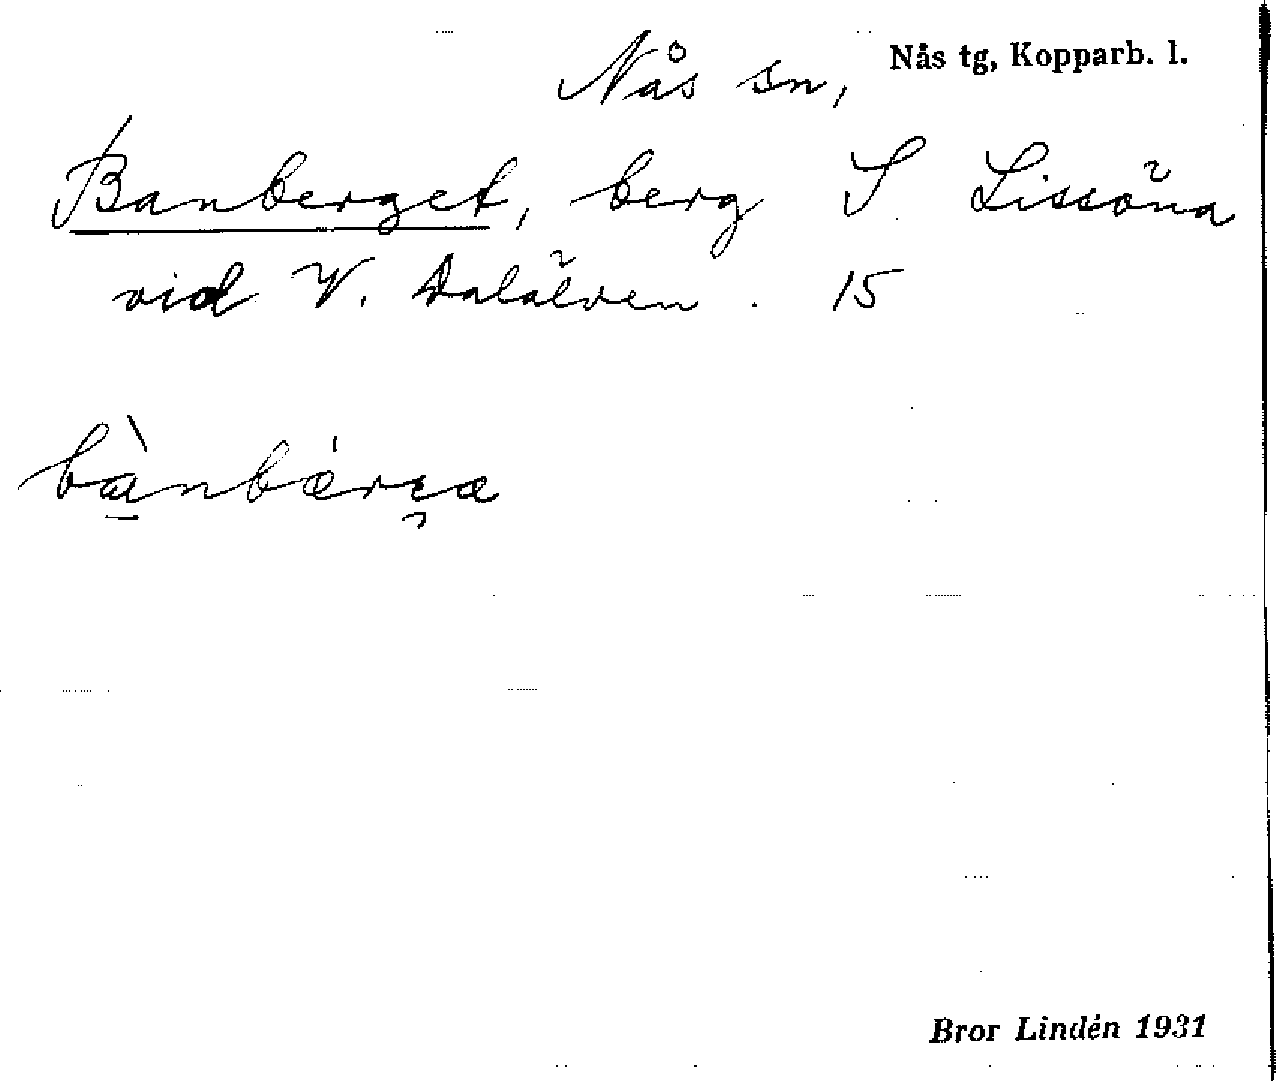 Nås sn, Nås tg, Kopparb. l.
Banberget, berg S Lissöna
vid V. Dalälven. 15
bànbárɛa
Bror Lindén 1931